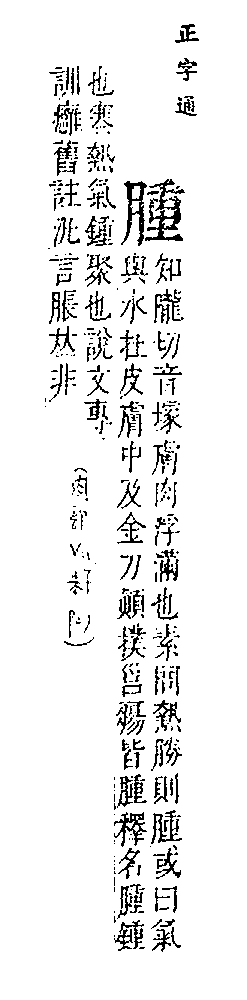 正字通
腫
知隴切音塚膚肉浮滿也素問熱勝則腫或曰氣
與水在皮膚中及金刀顛撲瘍皆腫釋名腫鍾
也寒熱氣鍾聚也說文專
訓癰舊註汎言脹𠀤非